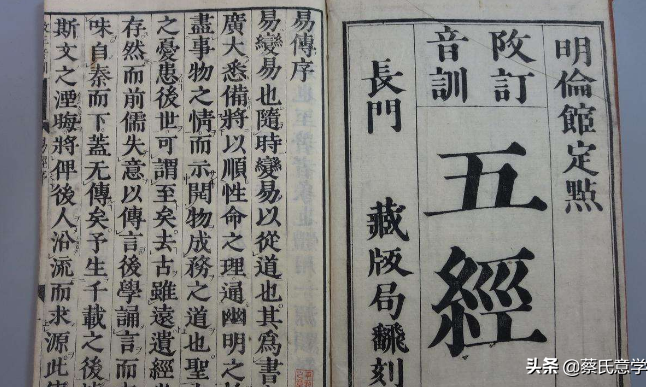 明倫館定點
改訂
音訓
五經
長門 藏版局飜刻
易傳序
易變易也隨時變易以從道也其為書
廣大悉備將以順性命之理通幽明之
盡事物之情而示開物成務之道也聖
之憂患後世可謂至矣去古雖遠遺經
存然而前儒失意以傳言後學誦言而
味自秦而下蓋無傳矣予生千載之後
斯文之湮晦將俾後人沿流而求源此
头条 @蔡氏意学